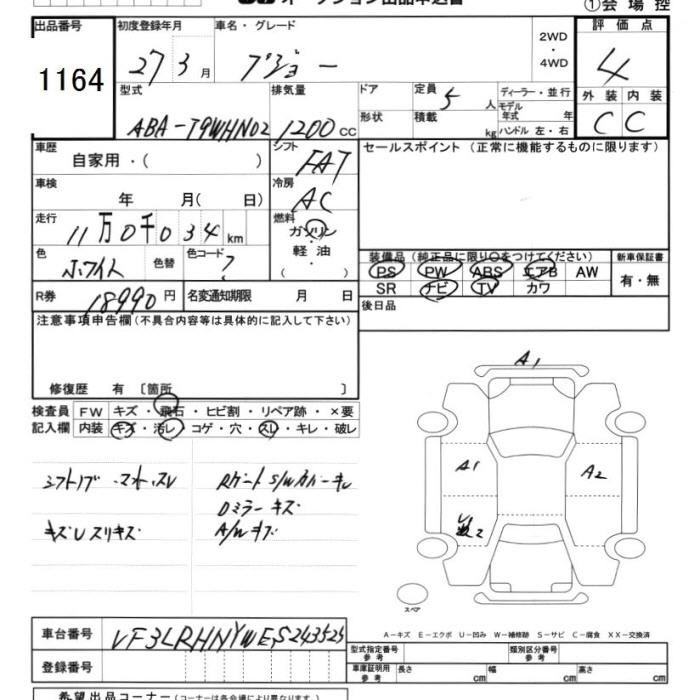 オークション出品申込書
①会場控
出品番号 1164
初度登録年月 27 3月
車名・グレード プジョー
2WD ・ 4WD
評価点 4
外装 内装
C C
型式 ABA-T9WHN02
排気量 1200 CC
ドア
形状
定員 5 人
積載 kg
ディーラー・並行
モデル年式 年
ハンドル 左・右
車歴 自家用・( )
シフト FAT
セールスポイント (正常に機能するものに限ります)
車検 年 月( 日)
冷房 AC
走行 11万0千034km
燃料 ガソリン ・ 軽油 ・ ( )
色 ホワイト 色替
色コード ?
装備品 (純正品に限り○をつけてください)
PS PW ABS エアB AW
SR ナビ TV カワ
新車保証書 有・無
R券 18990円
名変通知期限 月 日
後日品
注意事項申告欄(不具合内容等は具体的に記入して下さい)
修復歴 有 〔箇所 〕
検査員記入欄
FW キズ・飛石・ヒビ割・リペア跡・×要
内装 キズ・汚レ・コゲ・穴・スレ・キレ・破レ
シフトノブ
Dミラーキズ
キズUスリキズ
A/Wキズ
A1
A1
A2
スペア
A−キズ E−エクボ U−凹み W−補修跡 S−サビ C−腐食 XX−交換済
車台番号 VF3LRHNYWES243525
登録番号
型式指定番号 参考
類別区分番号 参考
車庫証明用 参考
長さ cm 幅 cm 高さ cm
希望出品コーナー (コーナーは各会場により異なります)